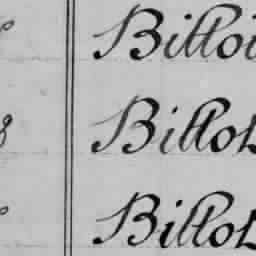 Billoi
8 Billot
Billot